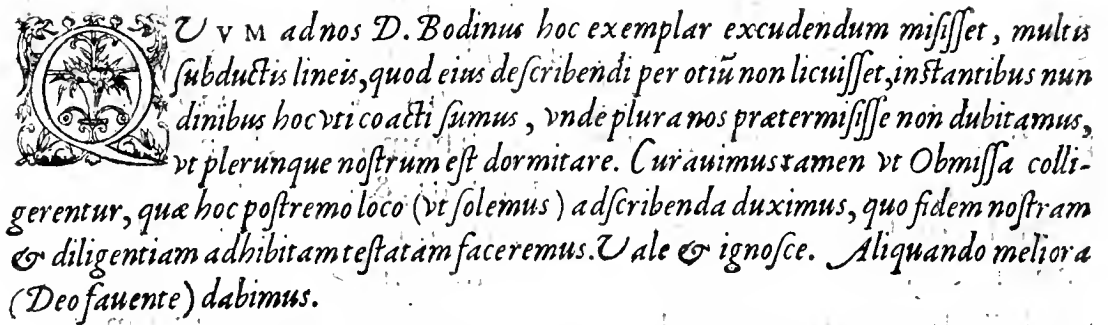 QVVM ad nos D. Bodinus hoc exemplar excudendum misiſſet, multis
ſubductis lineis, quod eius deſcribendi per otiū non licuiſſet, inſtantibus nun
dinibus hoc vti coacti ſumus, vnde plura nos prætermiſiſſe non dubitamus,
vt plerunque noſtrum eſt dormitare. Curauimus tamen vt Obmiſſa colli-
gerentur, quæ hoc poſtremo loco (vt ſolemus) adſcribenda duximus, quo fidem noſtram
& diligentiam adhibitam teſtatam faceremus. Vale & ignoſce. Aliquando meliora
(Deo fauente) dabimus.